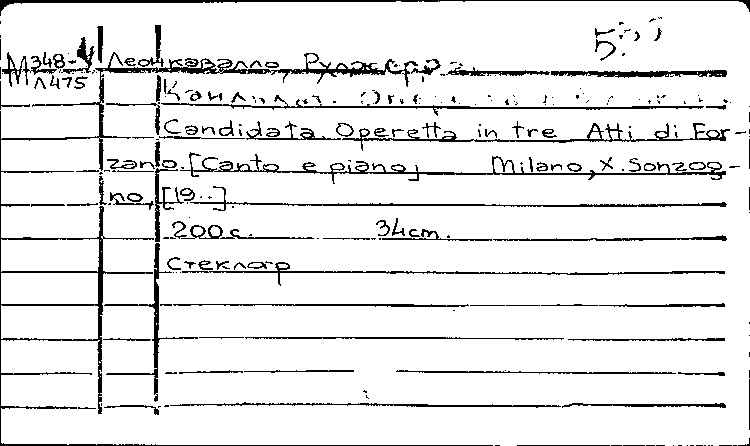 М348-4 Леонкавалло, Руджеро
Л475
Кандидат.
Candidata. Operetta in tre Atti di For-
zano. [Canto e piano] Milano, X. Sonzog-
no, [19..].
200с. 34cm.
Стеклогр